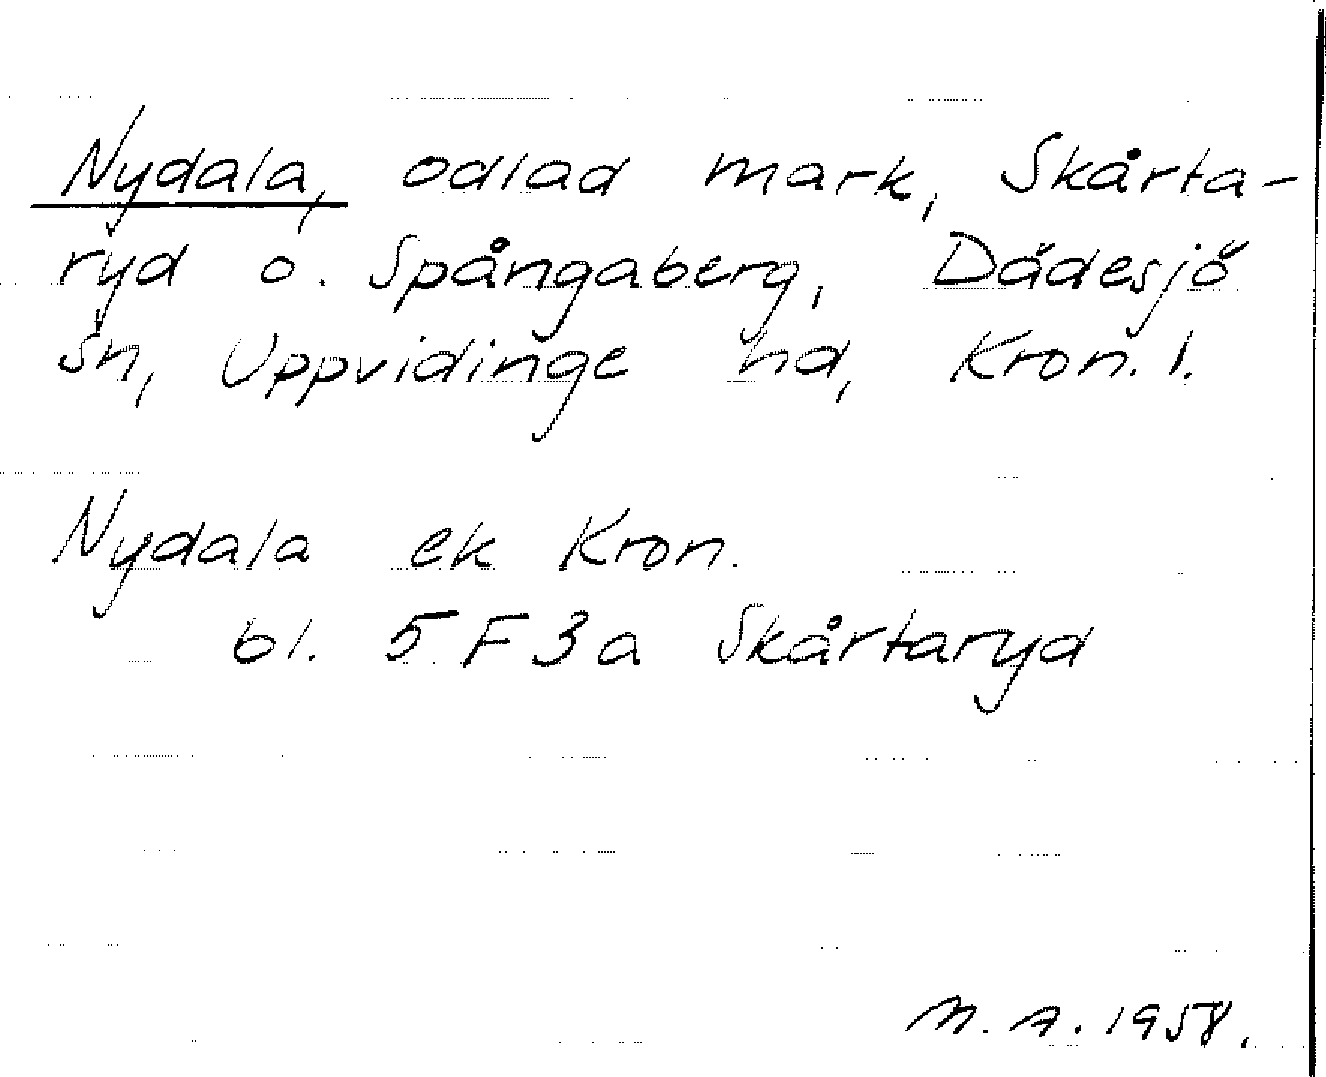 Nydala, odlad mark, Skårta-
ryd o. Spångaberg, Dädesjö
sn, Uppvidinge hd, Kron. l.
Nydala ek Kron.
bl. 5 F 3 a Skårtaryd
M. A. 1958.